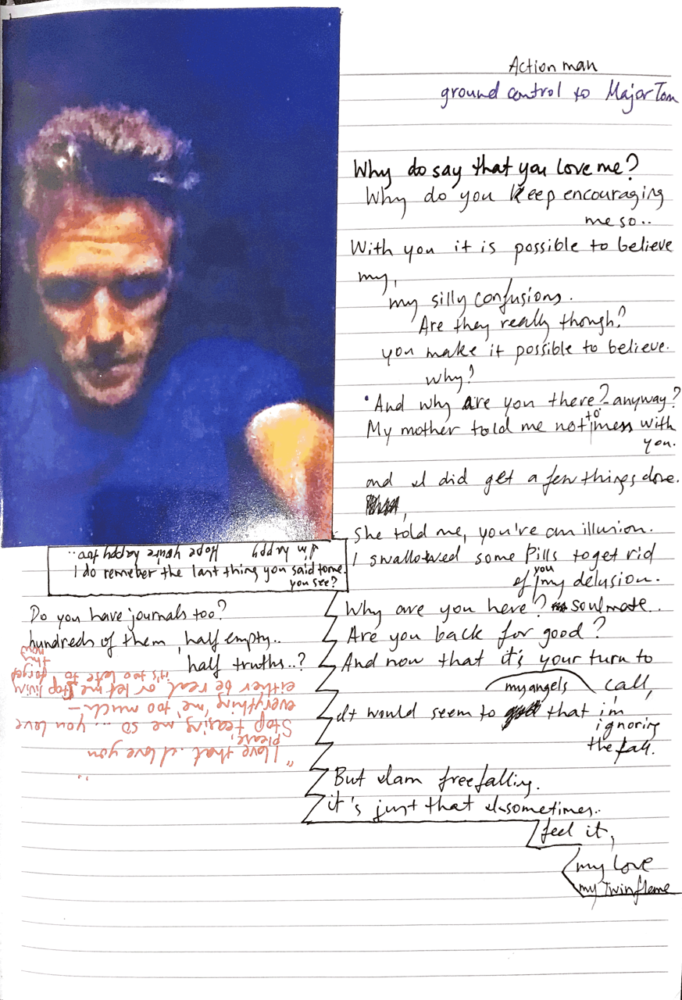 Action man
ground control to Major Tom
Why do say that you love me?
Why do you keep encouraging
me so..
With you it is possible to believe
my,
my silly confusions.
Are they really though?
you make it possible to believe.
why?
And why are you there?-anyway?
My mother told me not to mess with
you.
and I did get a few things done.
she told me, you're an illusion.
I swallowed some Pills to get rid
of you my delusion.
Why are you here? soulmate..
Are you back for good?
And now that it's your turn to
call,
my angels
It would seem to that i'm
ignoring
the fall.
But I am free falling.
it's just that I sometimes..
feel it,
my love
my Twinflame
i'm happy Hope you're happy too..
I do remeber the last thing you said to me.
you see?
Do you have journals too?
hundreds of them, half empty..
half truths..?
"I love that.. I love you
please,
Stop teasing me so ... you love
everything 'me,' too much-
either be real, or let me stop living
it's too late to forget
this
now
"